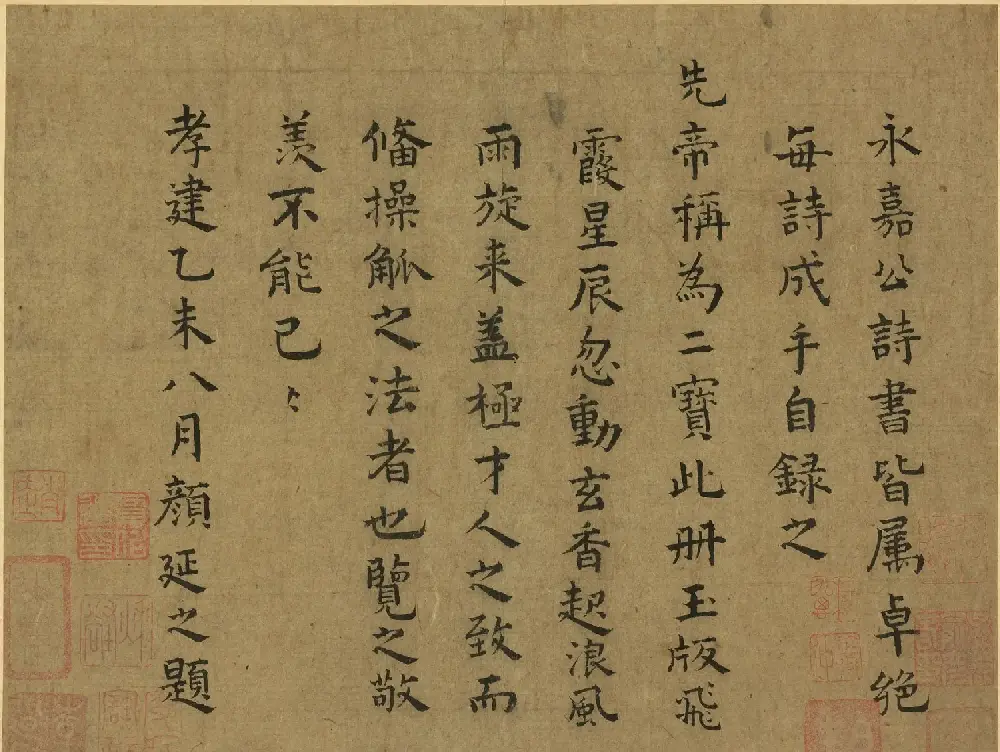 永嘉公詩書皆属卓绝
每詩成手自録之
先帝稱為二寶此冊玉版飛
霞星辰忽動玄香起浪風
雨旋来盖極才人之致而
俻操觚之法者也覽之敬
羡不能已〻
孝建乙未八月顔延之題